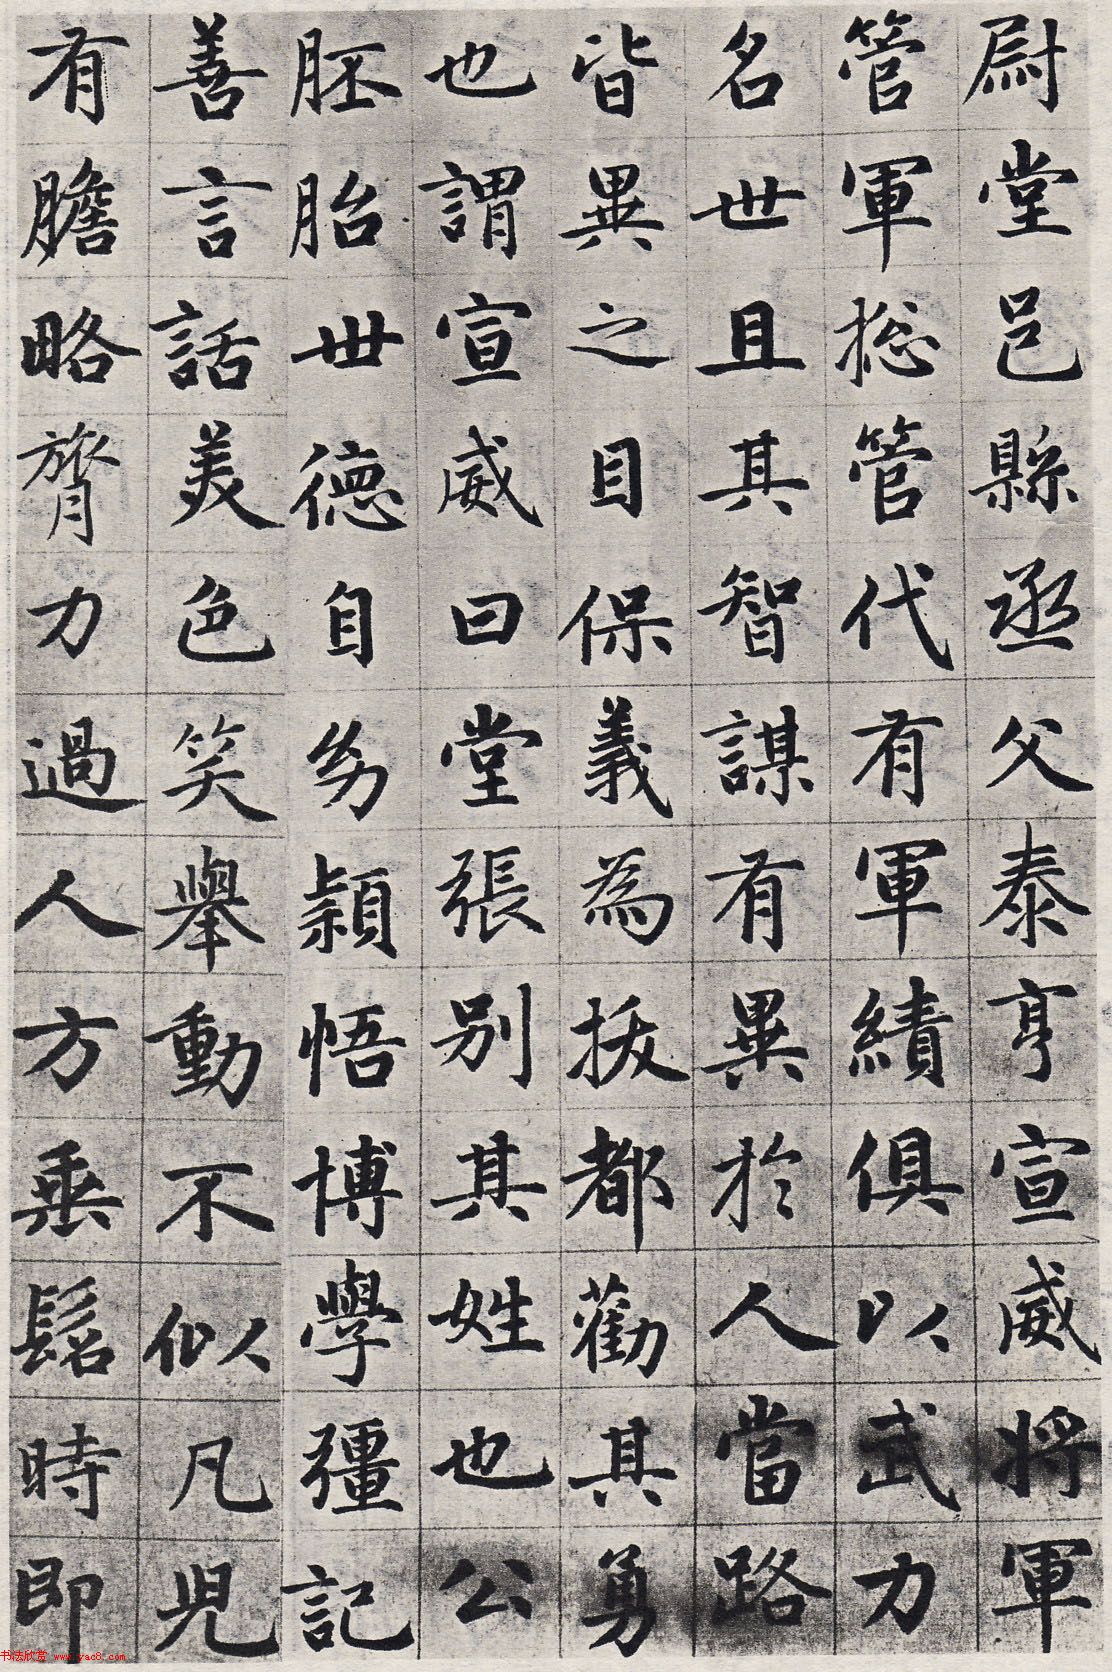 尉堂邑縣丞父泰亨宣威將軍
管軍捴管代有軍績俱以武力
名世且其智謀有異於人當路
皆異之目保義為拔都勸其勇
也謂宣威曰堂張別其姓也公
胚胎世德自幼穎悟博學彊記
善言話美色笑舉動不似凡兒
有膽略膂力過人方垂髫時即
书法欣赏 www.yac8.com